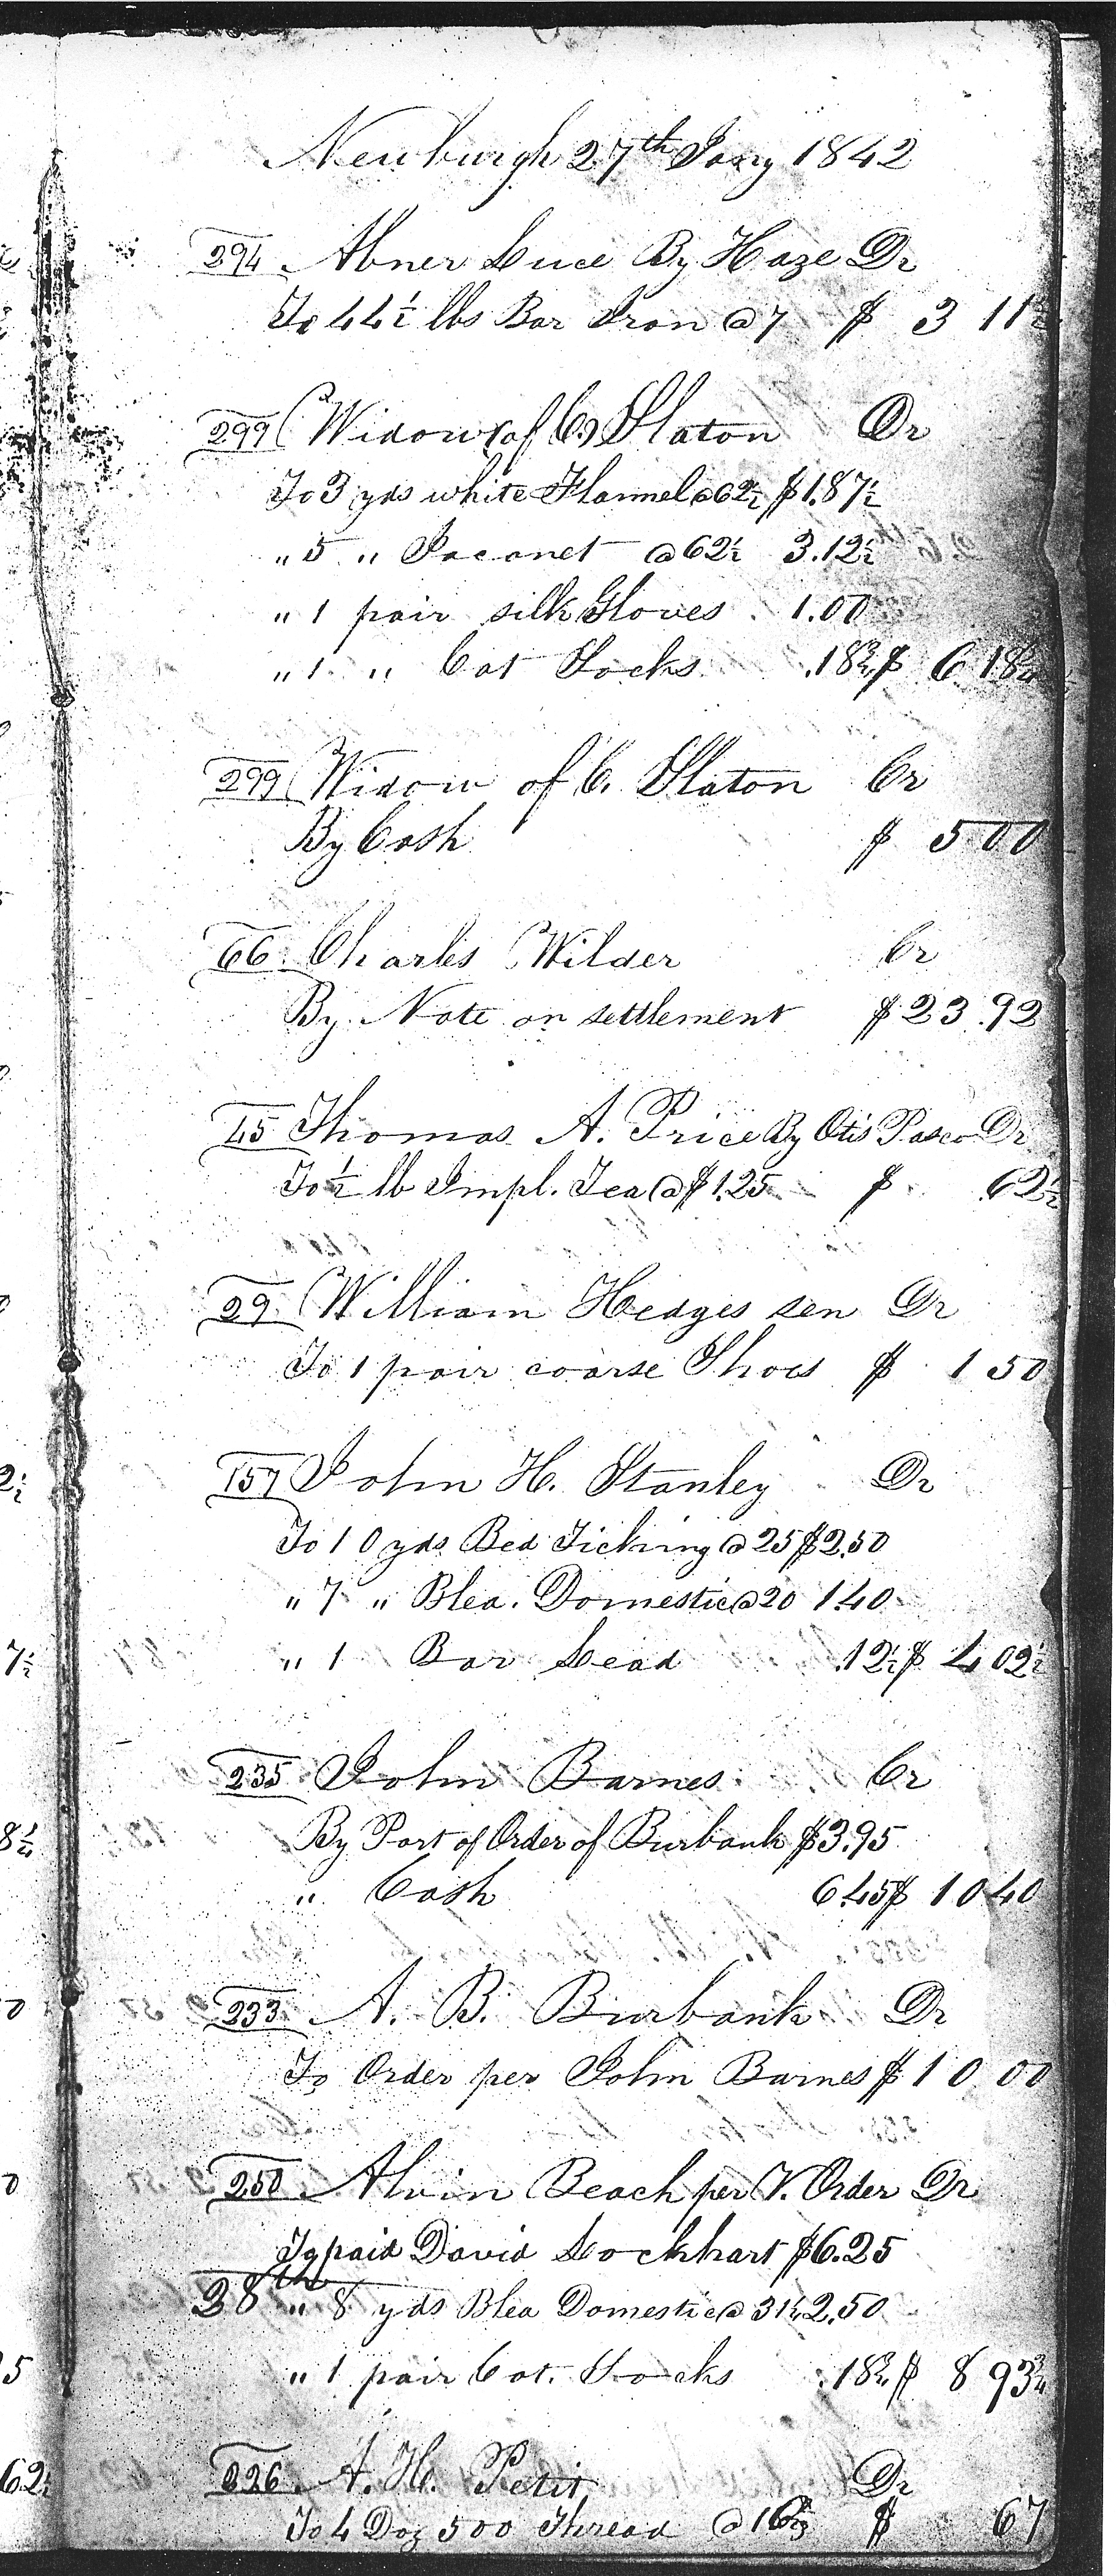 Newburgh 27th Jany 1842
294 Abner Luce By Haze Dr
To 44½ lbs Bar Iron @ 7 $ 3 11½
299 Widow (of C.) Slaton Dr
To 3 yds white Flannel @ 62½ $1.87½
" 5 " Jaconet @ 62½ 3.12½
" 1 pair silk Gloves 1.00
" 1 " Cot Socks .18¾ $ 6 18¾
299 Widow of C. Slaton Cr
By Cash $ 5 00
66 Charles Wilder Cr
By Note on settlement $ 23.92
45 Thomas A. Price By Otis Pasco Dr
To ½ lb Impl. Tea @ $1.25 $ .62½
29 William Hedges sen Dr
To 1 pair coarse Shoes $ 1 50
157 John H. Stanley Dr
To 10 yds Bed Ticking @ 25 $2.50
" 7 " Blea. Domestic @ 20 1.40
" 1 Bar Lead .12½ $ 4 02½
235 John Barnes Cr
By Part of Order of Burbank $3.95
" Cash 6.45 $ 10 40
233 A. B. Burbank Dr
To Order per John Barnes $ 10 00
250 Alvin Beach per V. Order Dr
To paid David Lockhart $6.25
28th " 8 yds Blea Domestic @ 31¼ 2.50
" 1 pair Cot. Socks .18¾ $ 8 93¾
226 A. H. Petit Dr
To 4 Doz 500 Thread @ 16⅔ $ 67